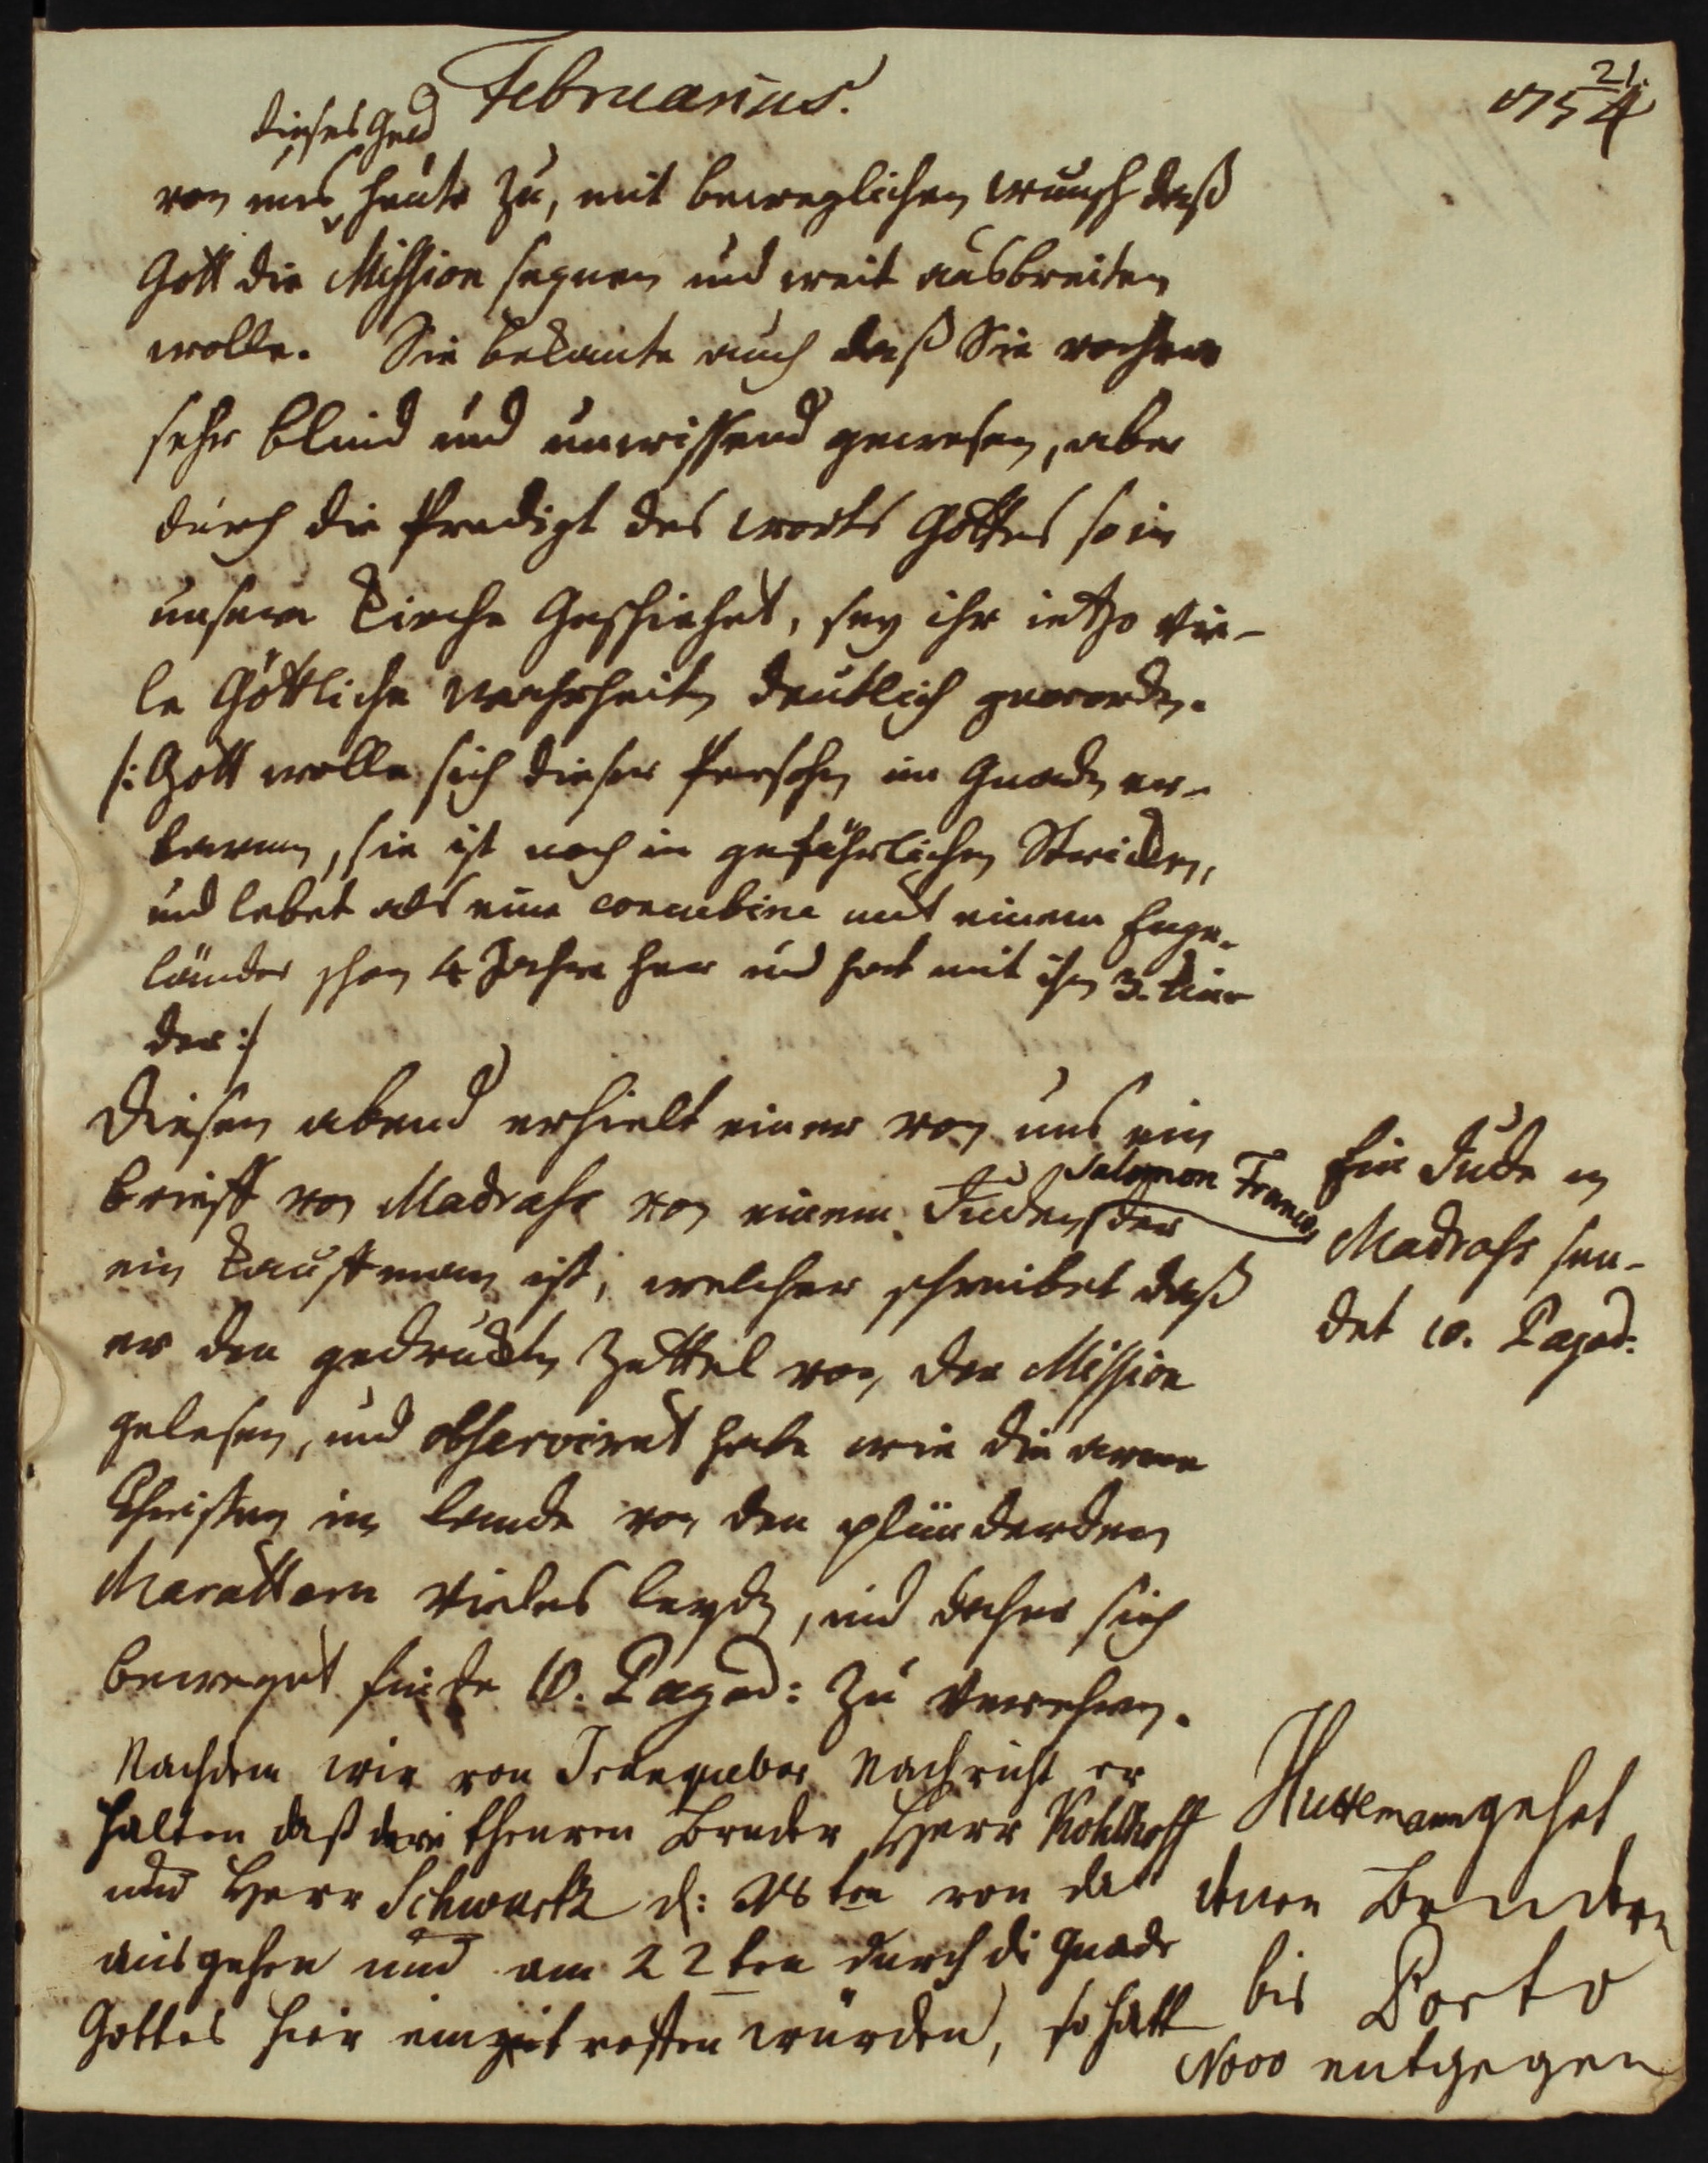 Februarius.
21.
1754
dieses Geld
von uns heute zu, mit beweglichen wunsch daß
Gott die Mission segnen und weit ausbreiten
wolle. Sie bekante auch daß Sie vorher
sehr blind und unwissend gewesen, aber
durch die Predigt des worts Gottes so in
unserer Kirche Geschiehet, sey ihr ietzo vie-
le Göttliche Wahrheiten deutlich geworden.
/: Gott wolle sich dieser Persohn in Gnaden er-
barmen, sie ist noch in gefährlichen Stricken,
und lebet als eine concubine mit einem Enge-
länder schon 4 Jahre her und hat mit ihm 3. Kin-
der :/
Diesen abend erhielt einer von uns ein
Salomon Franco
brieff von Madrass von einem Juden der
ein Kauffmann ist, welcher schreibet daß
er den gedruckten Zettel von der Mission
gelesen, und observiret habe wie die arme
Christen im Lande von den plünderden
Marattern Vieles leyden, und daher sich
beweget finde 10. Pagod: zu verehren.
Ein Jude in
Madrass sen-
det 10. Pagod:
Nachdem wir von Trangubar Nachricht er
halten daß die theuren Bruder Herr Kohlhoff
und Herr Schwartz d: 18ten von da
ausgehen und am 22ten durch die Gnade
Gottes hier eintreffen würden, so hatt
Huttemann gehet
denen Brudern
bis Porto
Novo entgegen